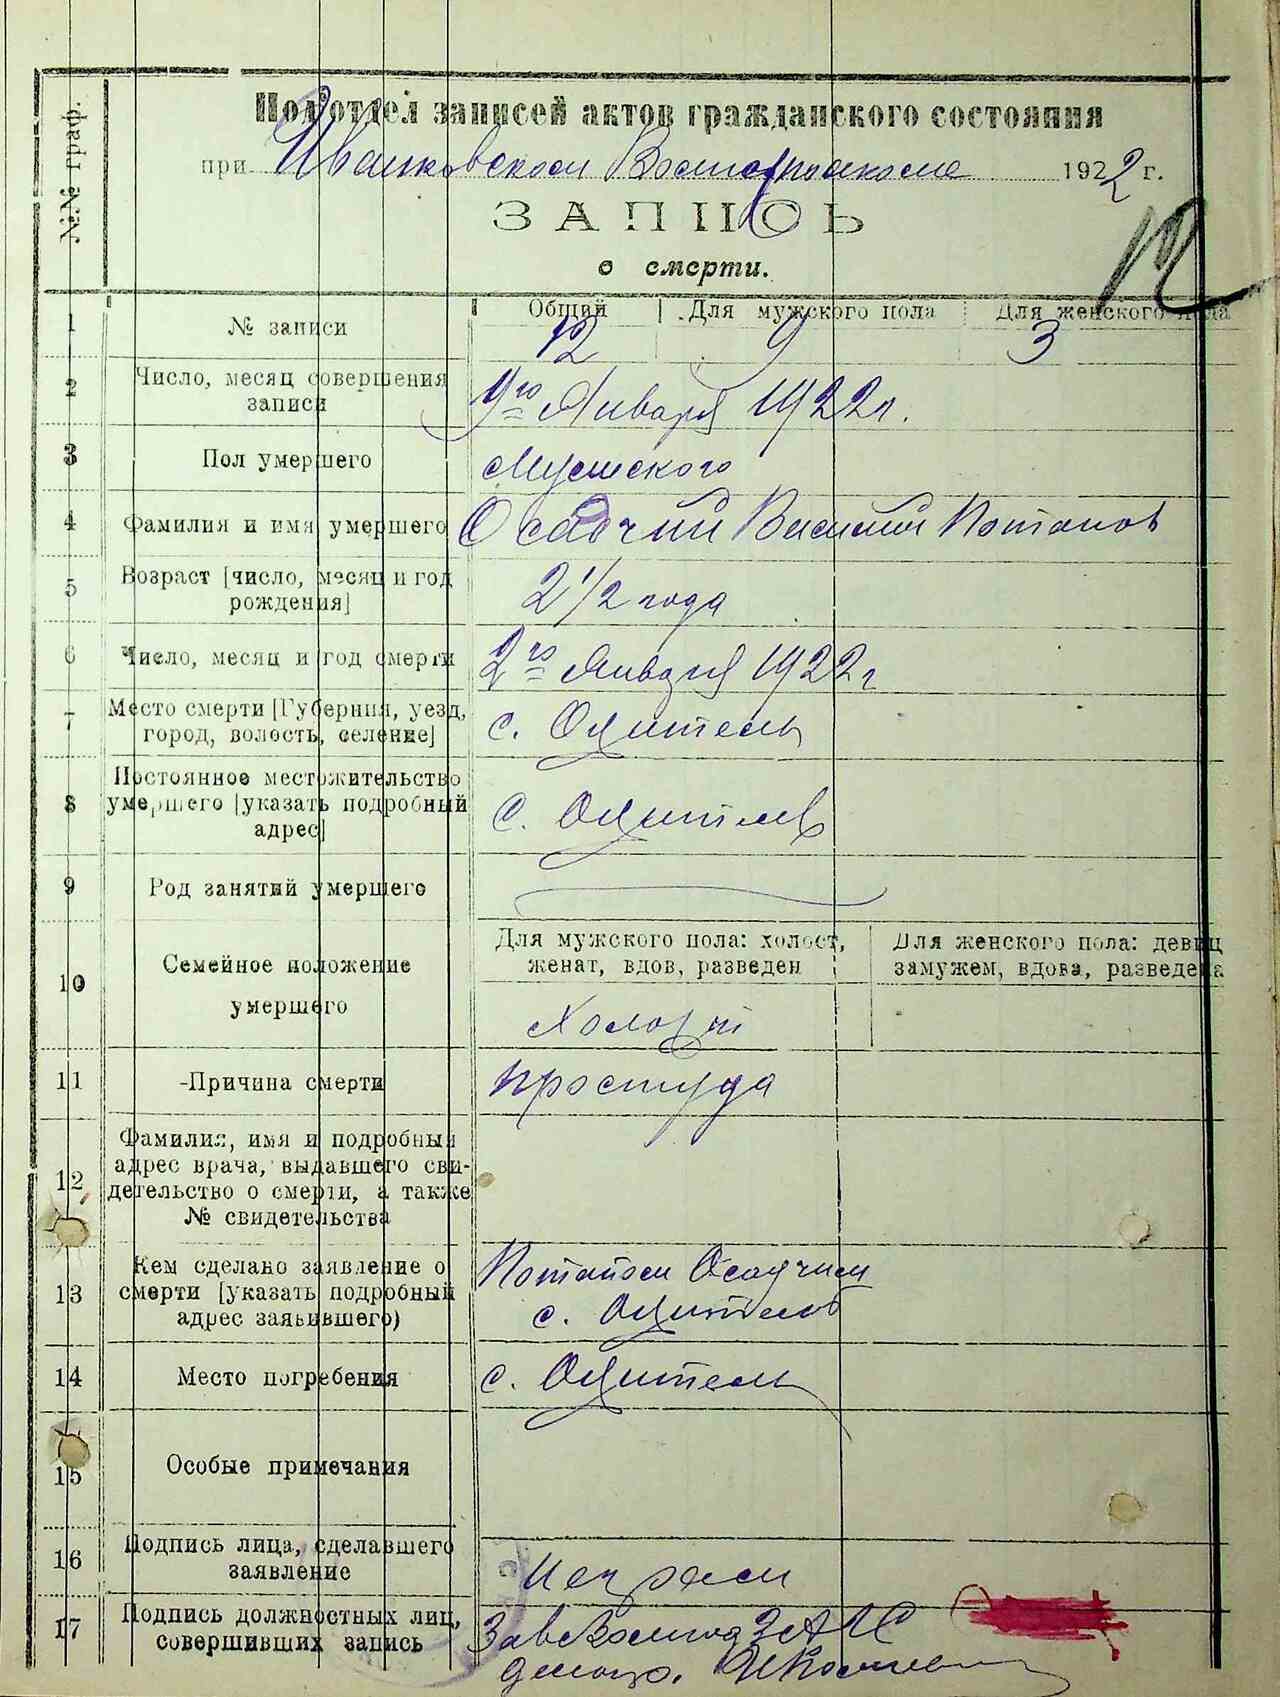 №№ граф.
Подотдел записей актов гражданского состояния
при Иванковском 1922 г.
ЗАПИСЬ
о смерти.
12
1 № записи Общий Для мужского пола Для женского пола
12 9 3
2 Число, месяц совершения записи
9го Января 1922 г.
3 Пол умершего
Мужского
4 Фамилия и имя умершего Осадчий Василий Потапов
5 Возраст [число, месяц и год рождения]
2 1/2 года
6 Число, месяц и год смерти 2го Января 1922 г
7 Место смерти [Губерния, уезд,
город, волость, селение]
с.
8 Постоянное местожительство
умершего [указать подробный
адрес]
с.
9 Род занятий умершего
10 Семейное положение
умершего
Для мужского пола: холост,
женат, вдов, разведен
Для женского пола: девиц
замужем, вдова, разведена
Холостой
11 -Причина смерти простуда
12 Фамилия, имя и подробный
адрес врача, выдавшего сви-
детельство о смерти, а также
№ свидетельства
13 Кем сделано заявление о
смерти [указать подробный
адрес заявившего)
Потапом Осадчим
с.
14 Место погребения с.
15 Особые примечания
16 Подпись лица, сделавшего
заявление
Неграм
17 Подпись должностных лиц,
совершивших запись
ЗАГС